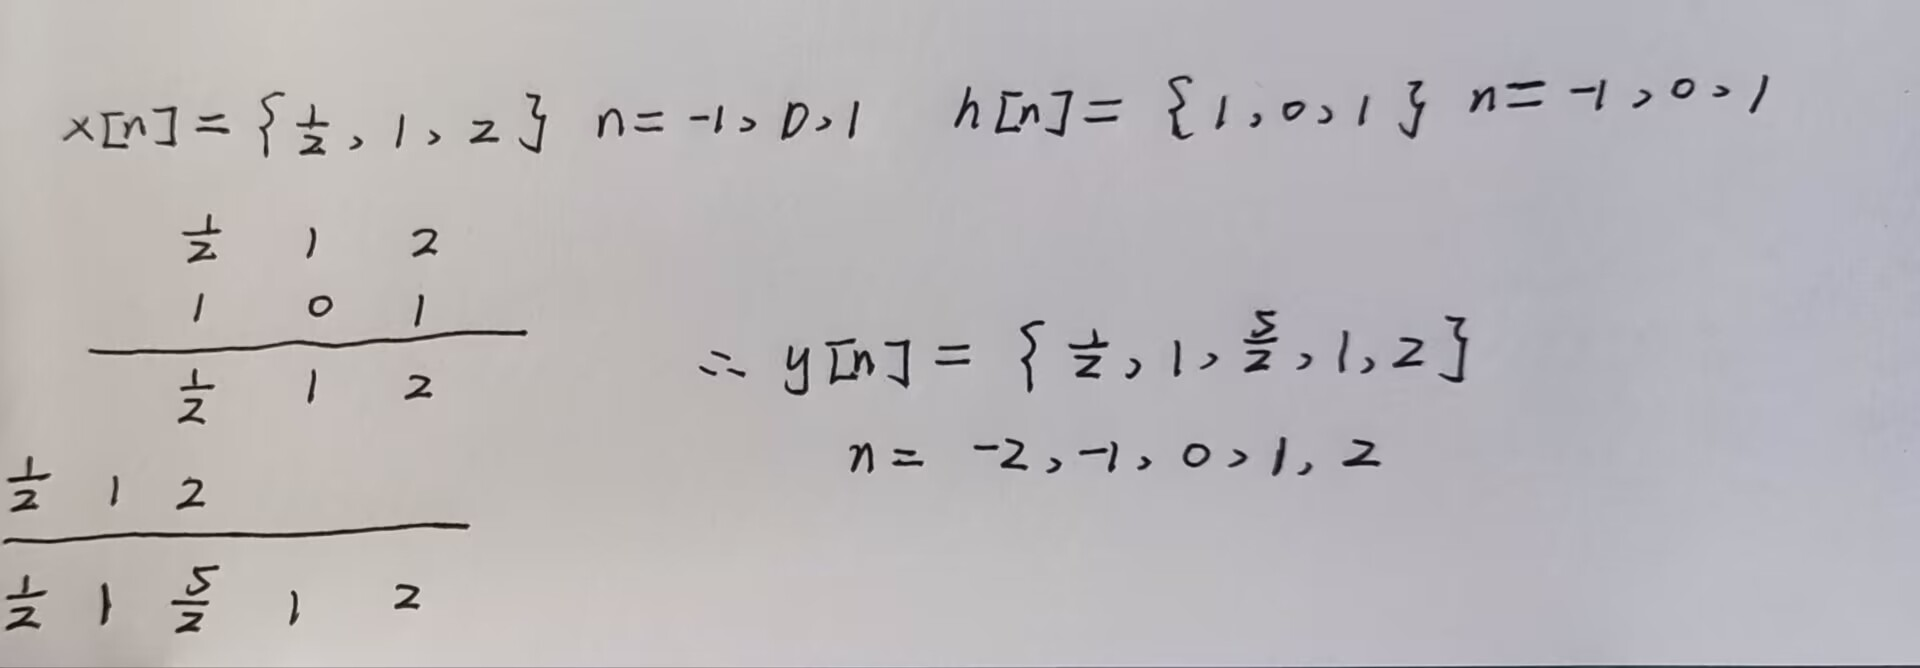 x[n] = {1/2, 1, 2} n = -1, 0, 1 h[n] = {1, 0, 1} n = -1, 0, 1
1/2 1 2
1 0 1
1/2 1 2
1/2 1 2
1/2 1 5/2 1 2
∴ y[n] = {1/2, 1, 5/2, 1, 2}
n = -2, -1, 0, 1, 2